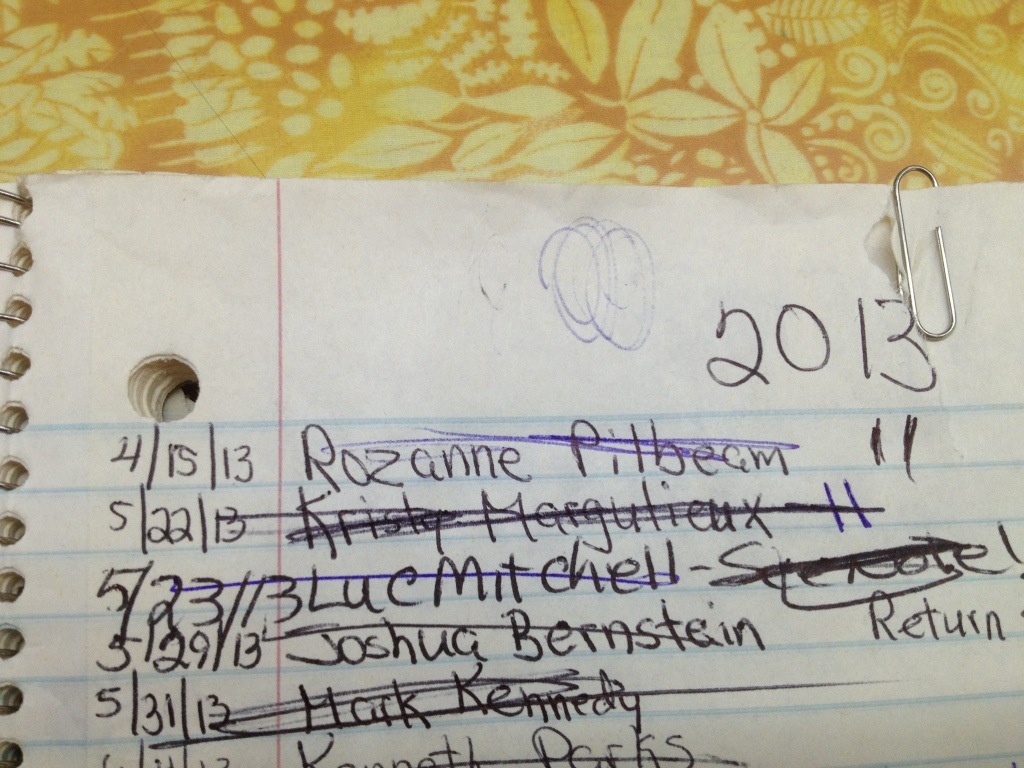 2013
4/15/13 Rozanne Pilbeam 11
5/22/13 Kristy Margulieux - 11
5/23/13 Luc Mitchell -
5/29/13 Joshua Bernstein Return
5/31/13 Mark Kennedy
Kenneth Parks